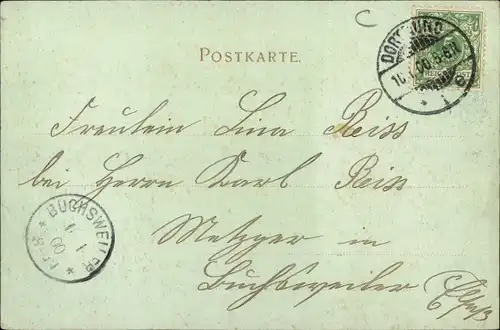 C
POSTKARTE.
DORTMUND
Fräulein Lina Reiss
bei Herrn Karl Reiss
Metzger in
Buchsweiler
Elsaß
BUCHSWEILER